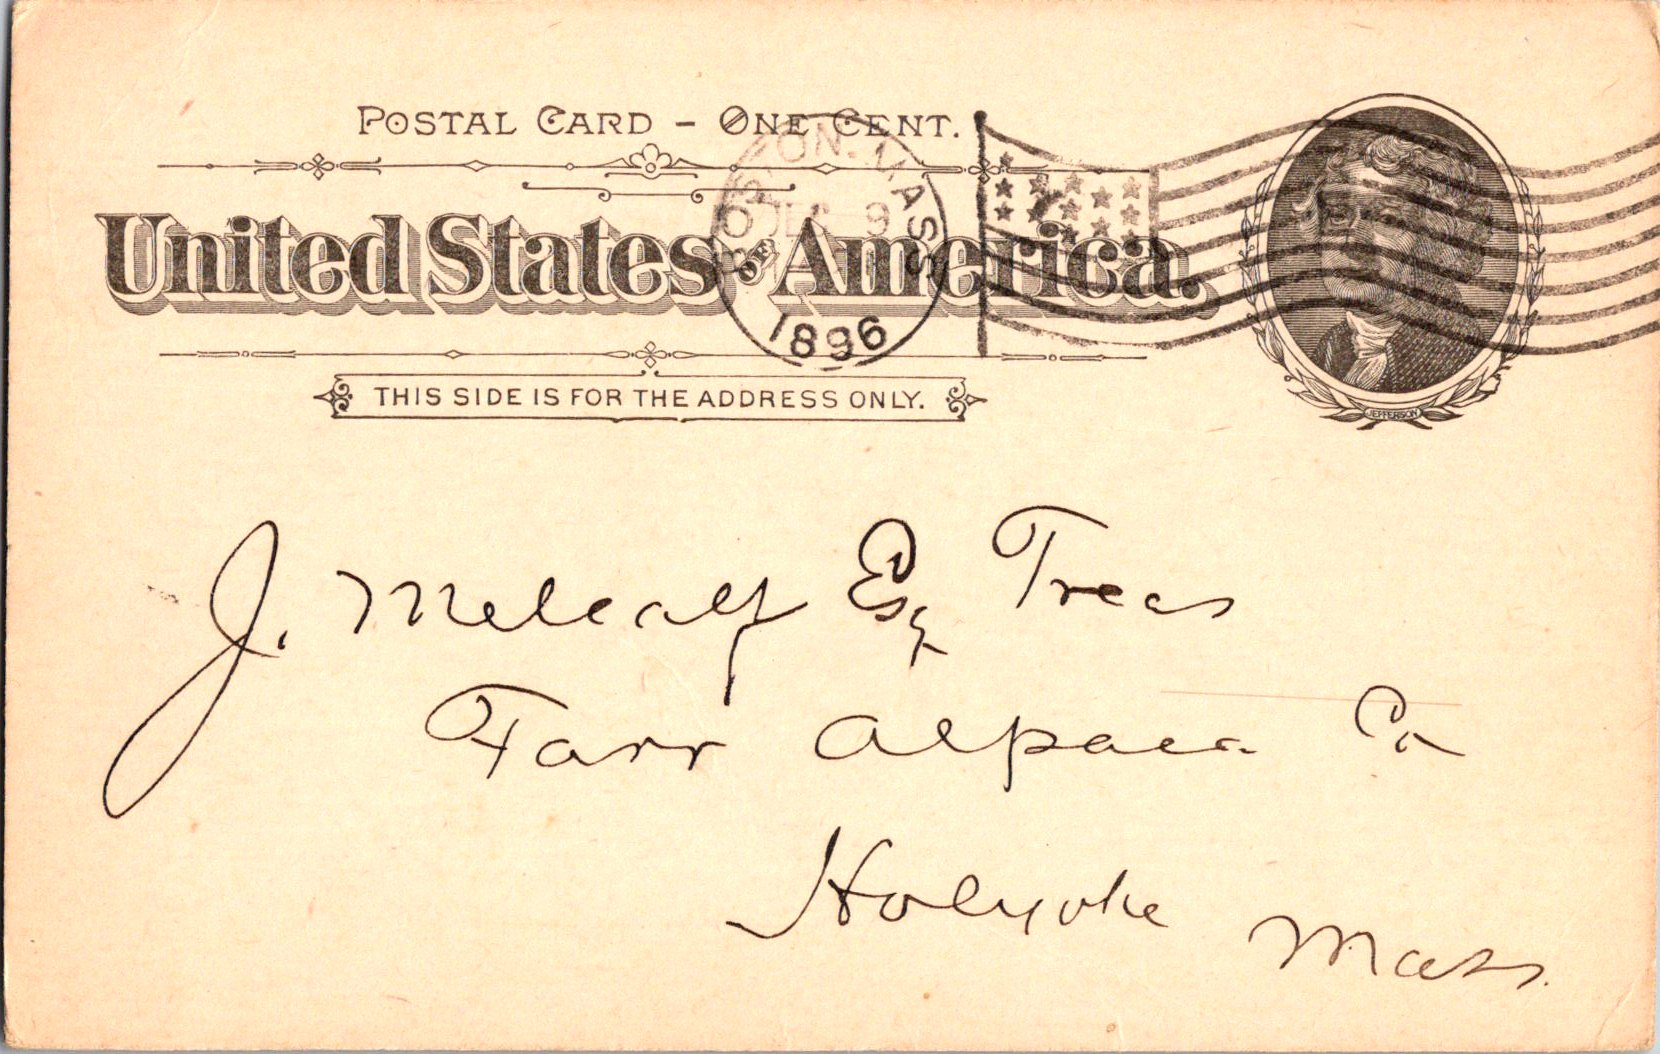 POSTAL CARD – ONE CENT.
BOSTON. MASS
DEC 9
1896
United States OF America.
THIS SIDE IS FOR THE ADDRESS ONLY.
JEFFERSON
J. Metcalf Esq Treas
Farr Alpaca Co
Holyoke Mass.